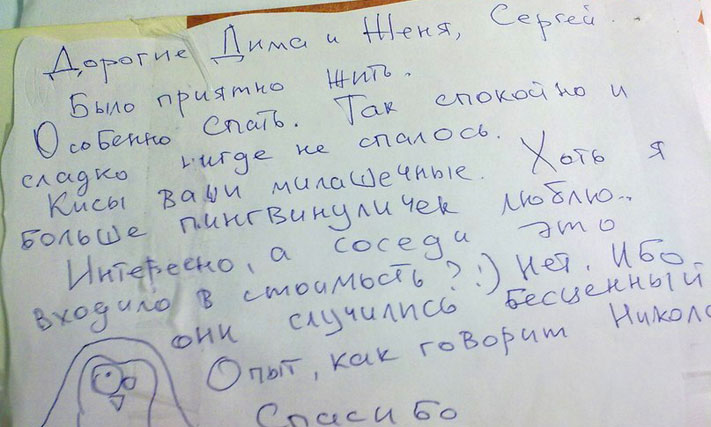 Дорогие Дима и Женя, Сергей.
Было приятно жить.
Особенно спать. Так спокойно и
сладко нигде не спалось.
Кисы ваши милашечные. Хоть я
больше пингвинуличек люблю..
Интересно, а соседи это
входило в стоимость? :) Нет. Ибо
они случились бесценный
Опыт, как говорит Никола
Спасибо